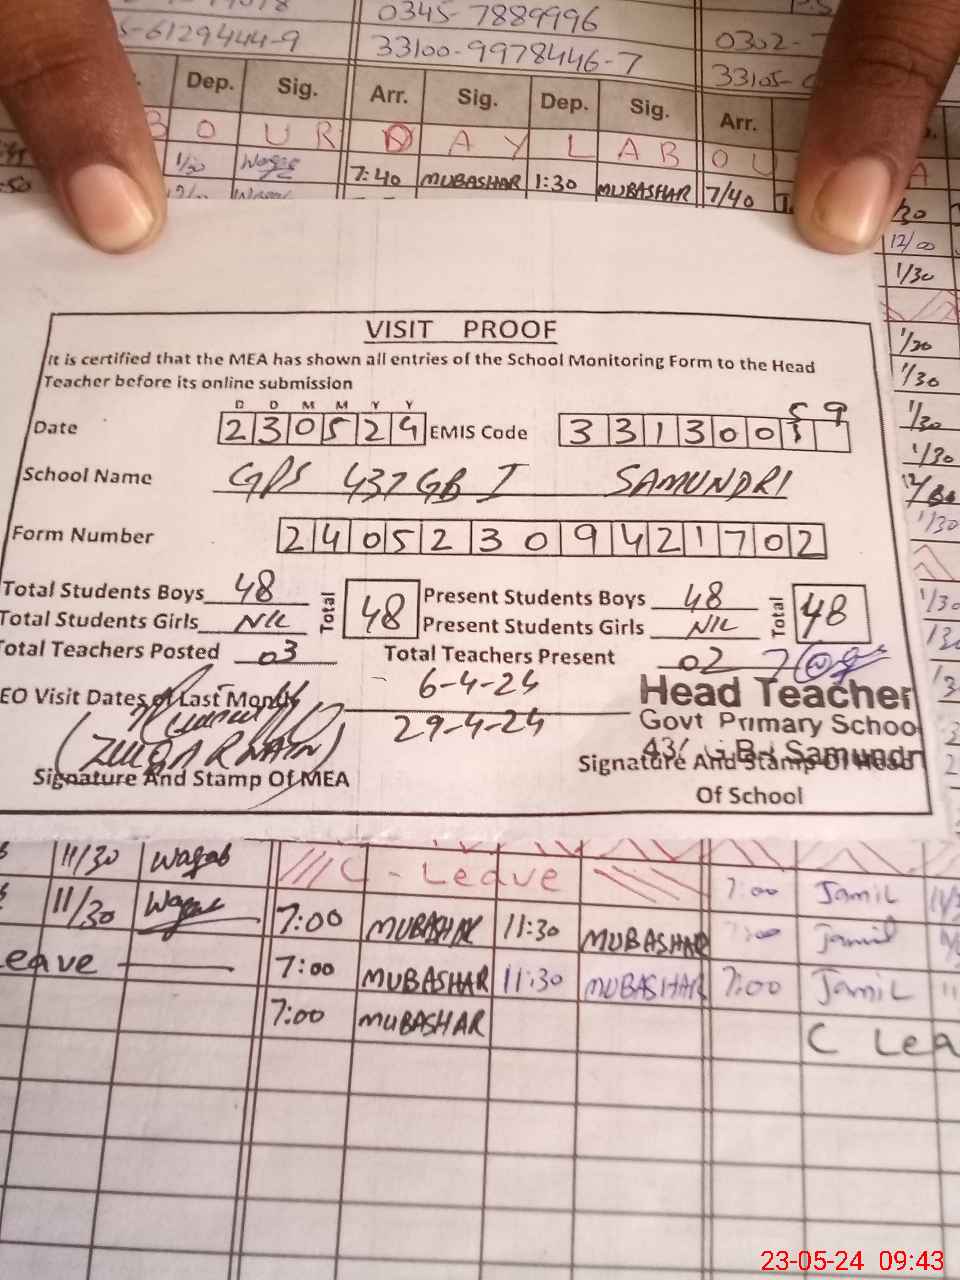 0345-7889996
-6129444-9 33100-9978446-7 0302-
33105-
Dep. Sig. Arr. Sig. Dep. Sig. Arr.
B O U R D A Y L A B O U
1/30 Waqas 7:40 MUBASHAR 1:30 MUBASHAR 7/40
12/00
1/30
1/30
1/30
1/30
1/30
1/30
1/30
VISIT PROOF
It is certified that the MEA has shown all entries of the School Monitoring Form to the Head
Teacher before its online submission
D D M M Y Y
Date 230524 EMIS Code 33130059
School Name GPS 437 GB I SAMUNDRI
Form Number 24052309421702
Total Students Boys 48 Total 48 Present Students Boys 48 Total 48
Total Students Girls NIL Present Students Girls NIL
Total Teachers Posted 03 Total Teachers Present 02
EO Visit Dates of Last Month 6-4-24
29-4-24
Head Teacher
Govt Primary School
437 G.B-I Samundri
(ZULQARNAIN)
Signature And Stamp Of MEA Signature And Stamp Of Head
Of School
11/30 Waqas C - Leave 7:00 Jamil
11/30 Waqas 7:00 MUBASHAR 11:30 MUBASHAR 7:00 Jamil
eave 7:00 MUBASHAR 11:30 MUBASHAR 7:00 Jamil
7:00 MUBASHAR C Lea
23-05-24 09:43